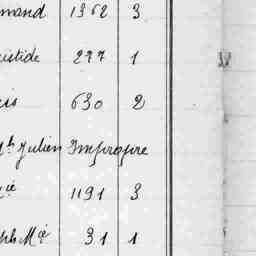 mand 1362 3
istide 277 1
is 630 2
Julien Impropre
ie 1191 3
ph Mie 31 1